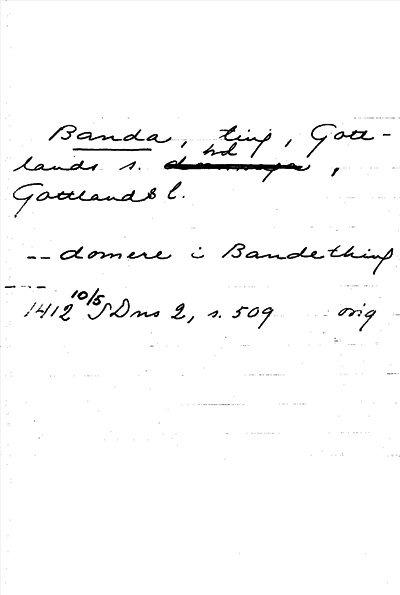 Banda, ting, Gott-
lands s. hd,
Gottlands l.
-- domere i Bandething
1412 10/5 SDns 2, s. 509 orig